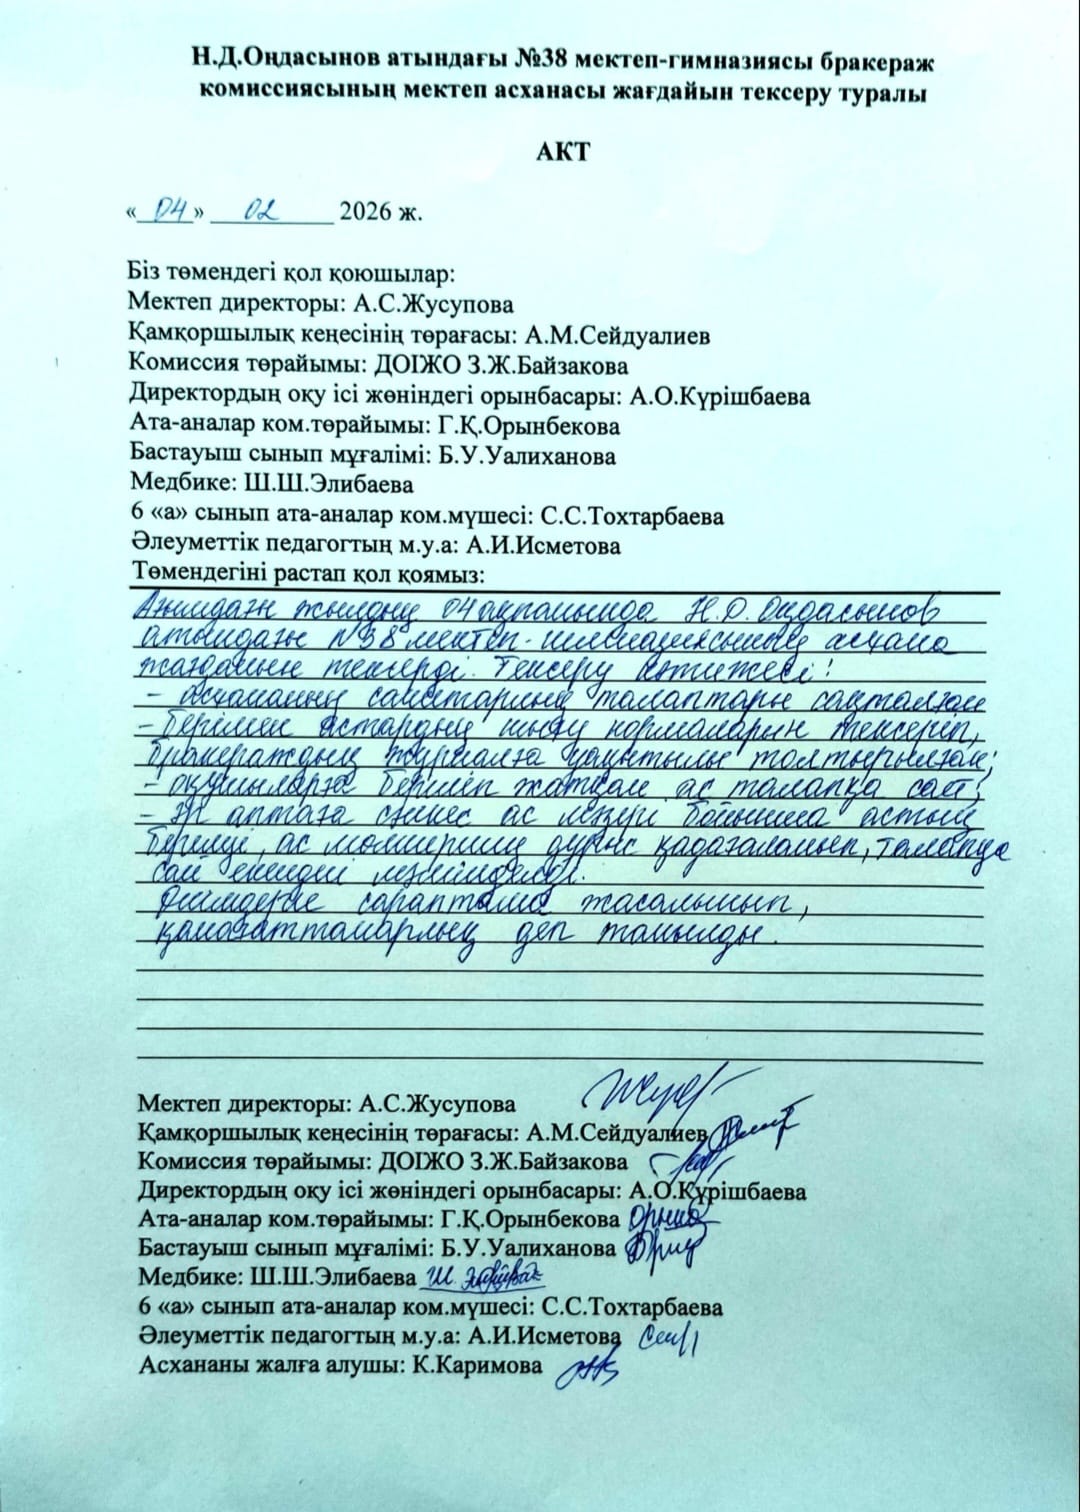 Н.Д.Оңдасынов атындағы №38 мектеп-гимназиясы бракераж
комиссиясының мектеп асханасы жағдайын тексеру туралы
АКТ
«04» 02 2026 ж.
Біз төмендегі қол қоюшылар:
Мектеп директоры: А.С.Жусупова
Қамқоршылық кеңесінің төрағасы: А.М.Сейдуалиев
Комиссия төрайымы: ДОІЖО З.Ж.Байзакова
Директордың оқу ісі жөніндегі орынбасары: А.О.Күрішбаева
Ата-аналар ком.төрайымы: Г.Қ.Орынбекова
Бастауыш сынып мұғалімі: Б.У.Уалиханова
Медбике: Ш.Ш.Элибаева
6 «а» сынып ата-аналар ком.мүшесі: С.С.Тохтарбаева
Әлеуметтік педагогтың м.у.а: А.И.Исметова
Төмендегіні растап қол қоямыз:
Ағымдағы жылдың 04 ақпанында Н.Д.Оңдасынов
атындағы №38 мектеп-гимназиясының асхана
жағдайын тексерді. Тексеру нәтижесі:
- Асхананың санитарлық талаптары сақталған
- Берілген астардың шығу нормаларын тексеріп,
бракераждық журналға уақытылы толтырылған;
- оқушыларға беріліп жатқан ас талапқа сай;
- Әр аптаға сәйкес ас мәзірі бойынша астың
берілуі, ас мөлшерінің дұрыс қадағаланып, талапқа
сай екендігі
сараптама жасалынып,
қанағаттанарлық деп танылды.
Мектеп директоры: А.С.Жусупова
Қамқоршылық кеңесінің төрағасы: А.М.Сейдуалиев
Комиссия төрайымы: ДОІЖО З.Ж.Байзакова
Директордың оқу ісі жөніндегі орынбасары: А.О.Күрішбаева
Ата-аналар ком.төрайымы: Г.Қ.Орынбекова
Бастауыш сынып мұғалімі: Б.У.Уалиханова
Медбике: Ш.Ш.Элибаева
6 «а» сынып ата-аналар ком.мүшесі: С.С.Тохтарбаева
Әлеуметтік педагогтың м.у.а: А.И.Исметова
Асхананы жалға алушы: К.Каримова